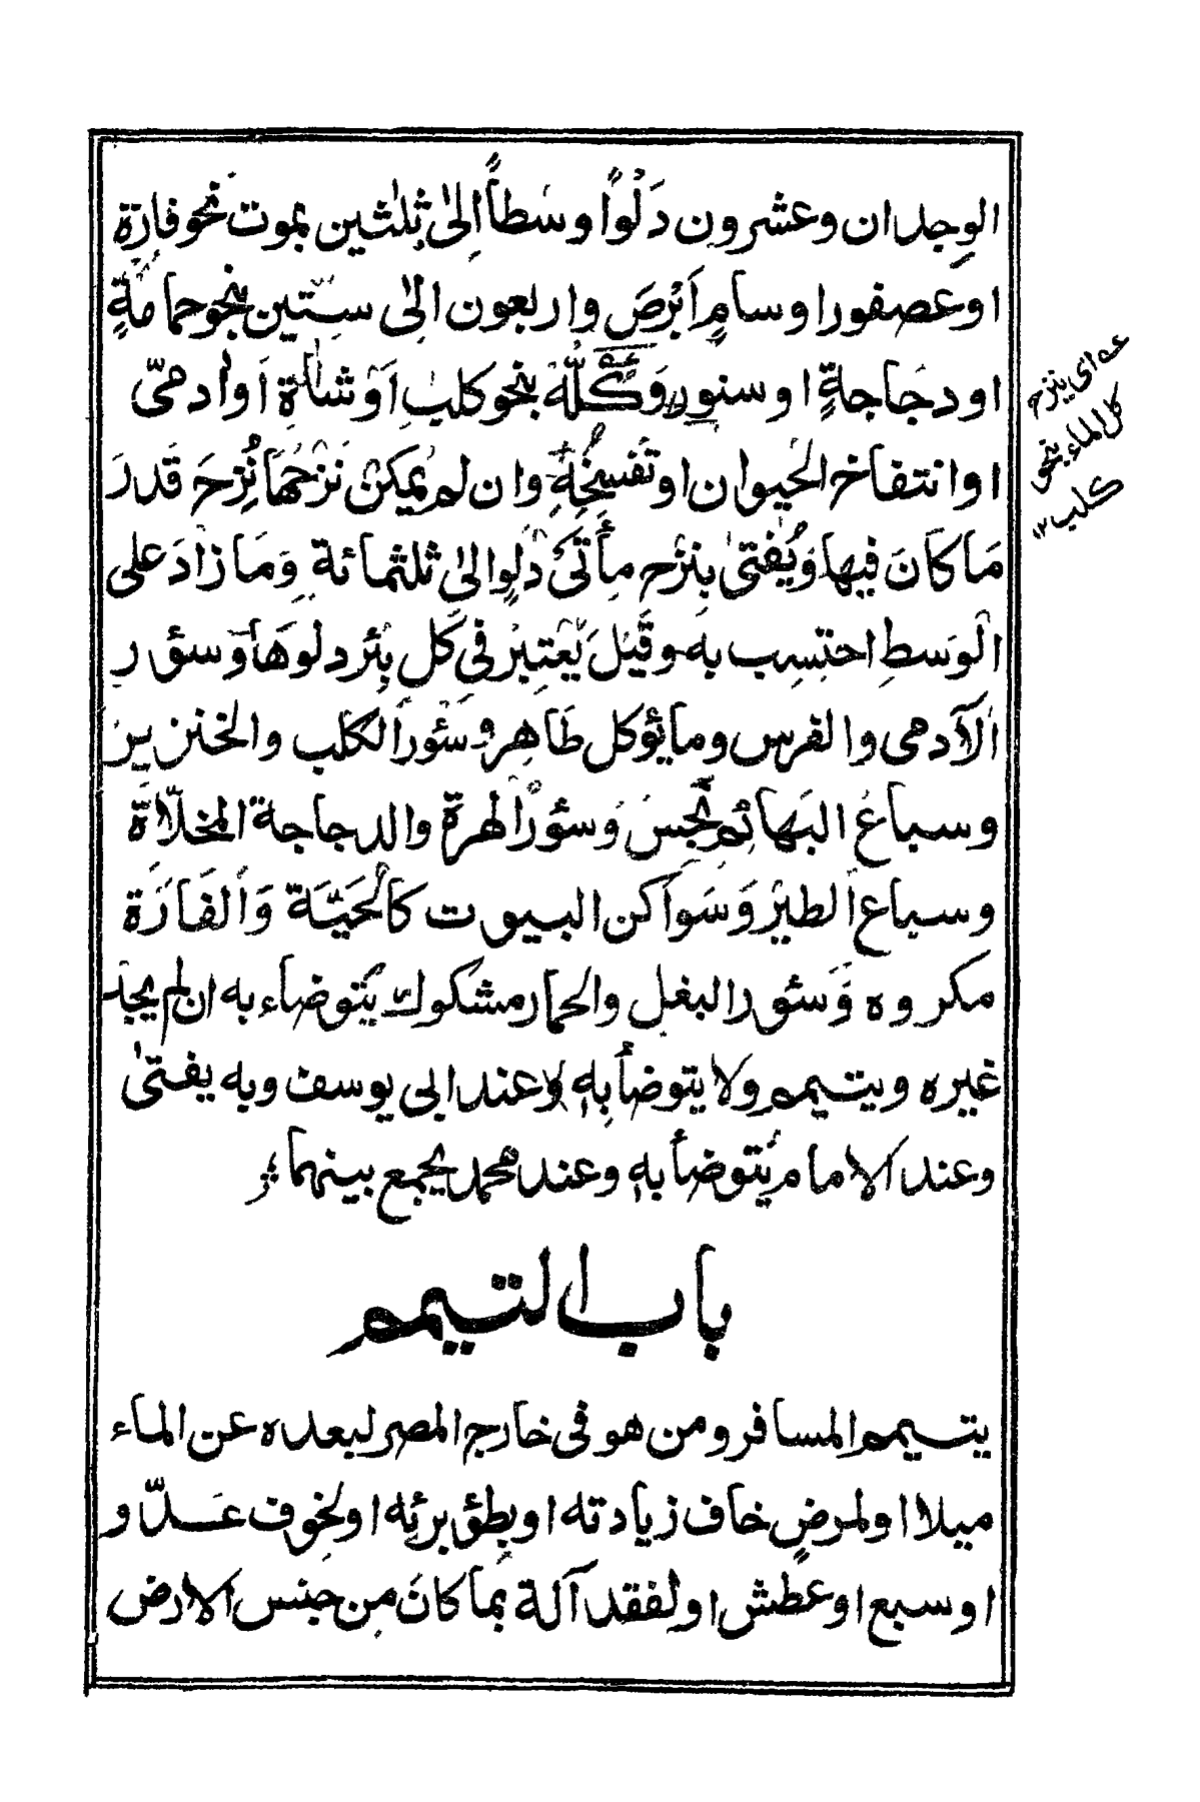 الوِجدان وعشرون دَلْوًا وسَطاً اِلىٰ ثلٰثين بموت نحو فارَةٍ
اوعصفور اوسامِّ اَبْرصَ واربعون الىٰ سِتّين بنحو حمامةٍ
اودجَاجةٍ اوسنورٍ وَكُلُّهٗ بنحو كلبٍ اَوْ شاةٍ اَوْ اٰدمىّ
اوانتفاخ الحَيوان اوتَفسُّخِهٖ وان لم يُمكِنْ نَزحُهَا نُزِحَ قَدرَ
مَاكَانَ فيها وَيُفتىٰ بِنَزْحِ مِأَتَىْ دَلْوٍ الىٰ ثلثمائة وَمَا زادَ على
الْوَسطِ احتسِب بهٖ وقِيْلَ يُعْتبرُ فى كل بِئر دلوهَا وَسؤر
الْآدمى والفرس ومايؤكل طَاهِر وَسُؤرالكلب والخنزير
وسباعُ البَهائِم نَجِسٌ وَسؤرُ الهرة والدجاجة المخلّاة
وسباع الطيْر وَسَواكن البيوت كالْحَيَّة وَالفَارَة
مكروه وَسئور البغل والحمار مشكوك يتوضاء به ان لم يجد
غيره ويتيمم ولا يتوضأ بِهٖ وعند ابى يوسف وبه يفتىٰ
وعند الامام يَتوضأ بهٖ وعند محمد يجمع بينهما
باب التيمم
يتيمم المسافر ومن هو فى خارج المصر لبعده عن الماء
ميلا اولمرضٍ خاف زيادته اوبطؤ برئه اولخوف عدّو
اوسبع اوعطش اولفقد آلة بما كانَ مِن جنس الارض
عه اى ينزح
كل الماء بنحو
كلب ١٢